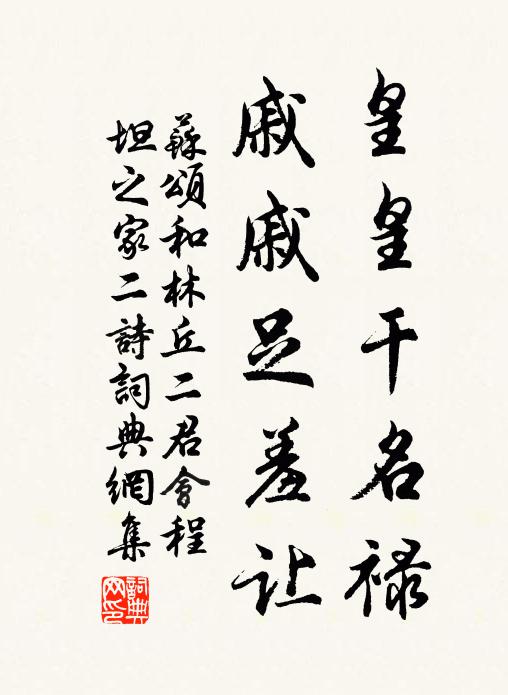 皇皇干名禄
戚戚足羞让
蘇頌和林丘二君會程
坦之家二詩詞典網集
詞典
网印